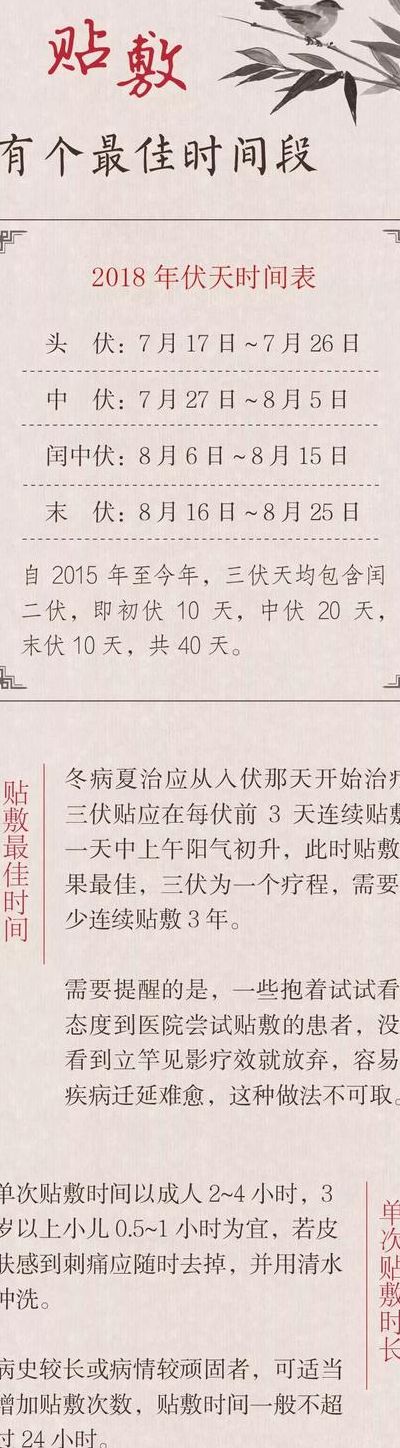 贴敷
有个最佳时间段
2018 年伏天时间表
头 伏：7 月 17 日 ~ 7 月 26 日
中 伏：7 月 27 日 ~ 8 月 5 日
闰中伏：8 月 6 日 ~ 8 月 15 日
末 伏：8 月 16 日 ~ 8 月 25 日
自 2015 年至今年，三伏天均包含闰
二伏，即初伏 10 天，中伏 20 天，
末伏 10 天，共 40 天。
贴敷最佳时间
冬病夏治应从入伏那天开始治疗
三伏贴应在每伏前 3 天连续贴敷
一天中上午阳气初升，此时贴敷
果最佳，三伏为一个疗程，需要
少连续贴敷 3 年。
需要提醒的是，一些抱着试试看
态度到医院尝试贴敷的患者，没
看到立竿见影疗效就放弃，容易
疾病迁延难愈，这种做法不可取。
单次贴敷时长
单次贴敷时间以成人 2~4 小时，3
岁以上小儿 0.5~1 小时为宜，若皮
肤感到刺痛应随时去掉，并用清水
冲洗。
病史较长或病情较顽固者，可适当
增加贴敷次数，贴敷时间一般不超
过 24 小时。